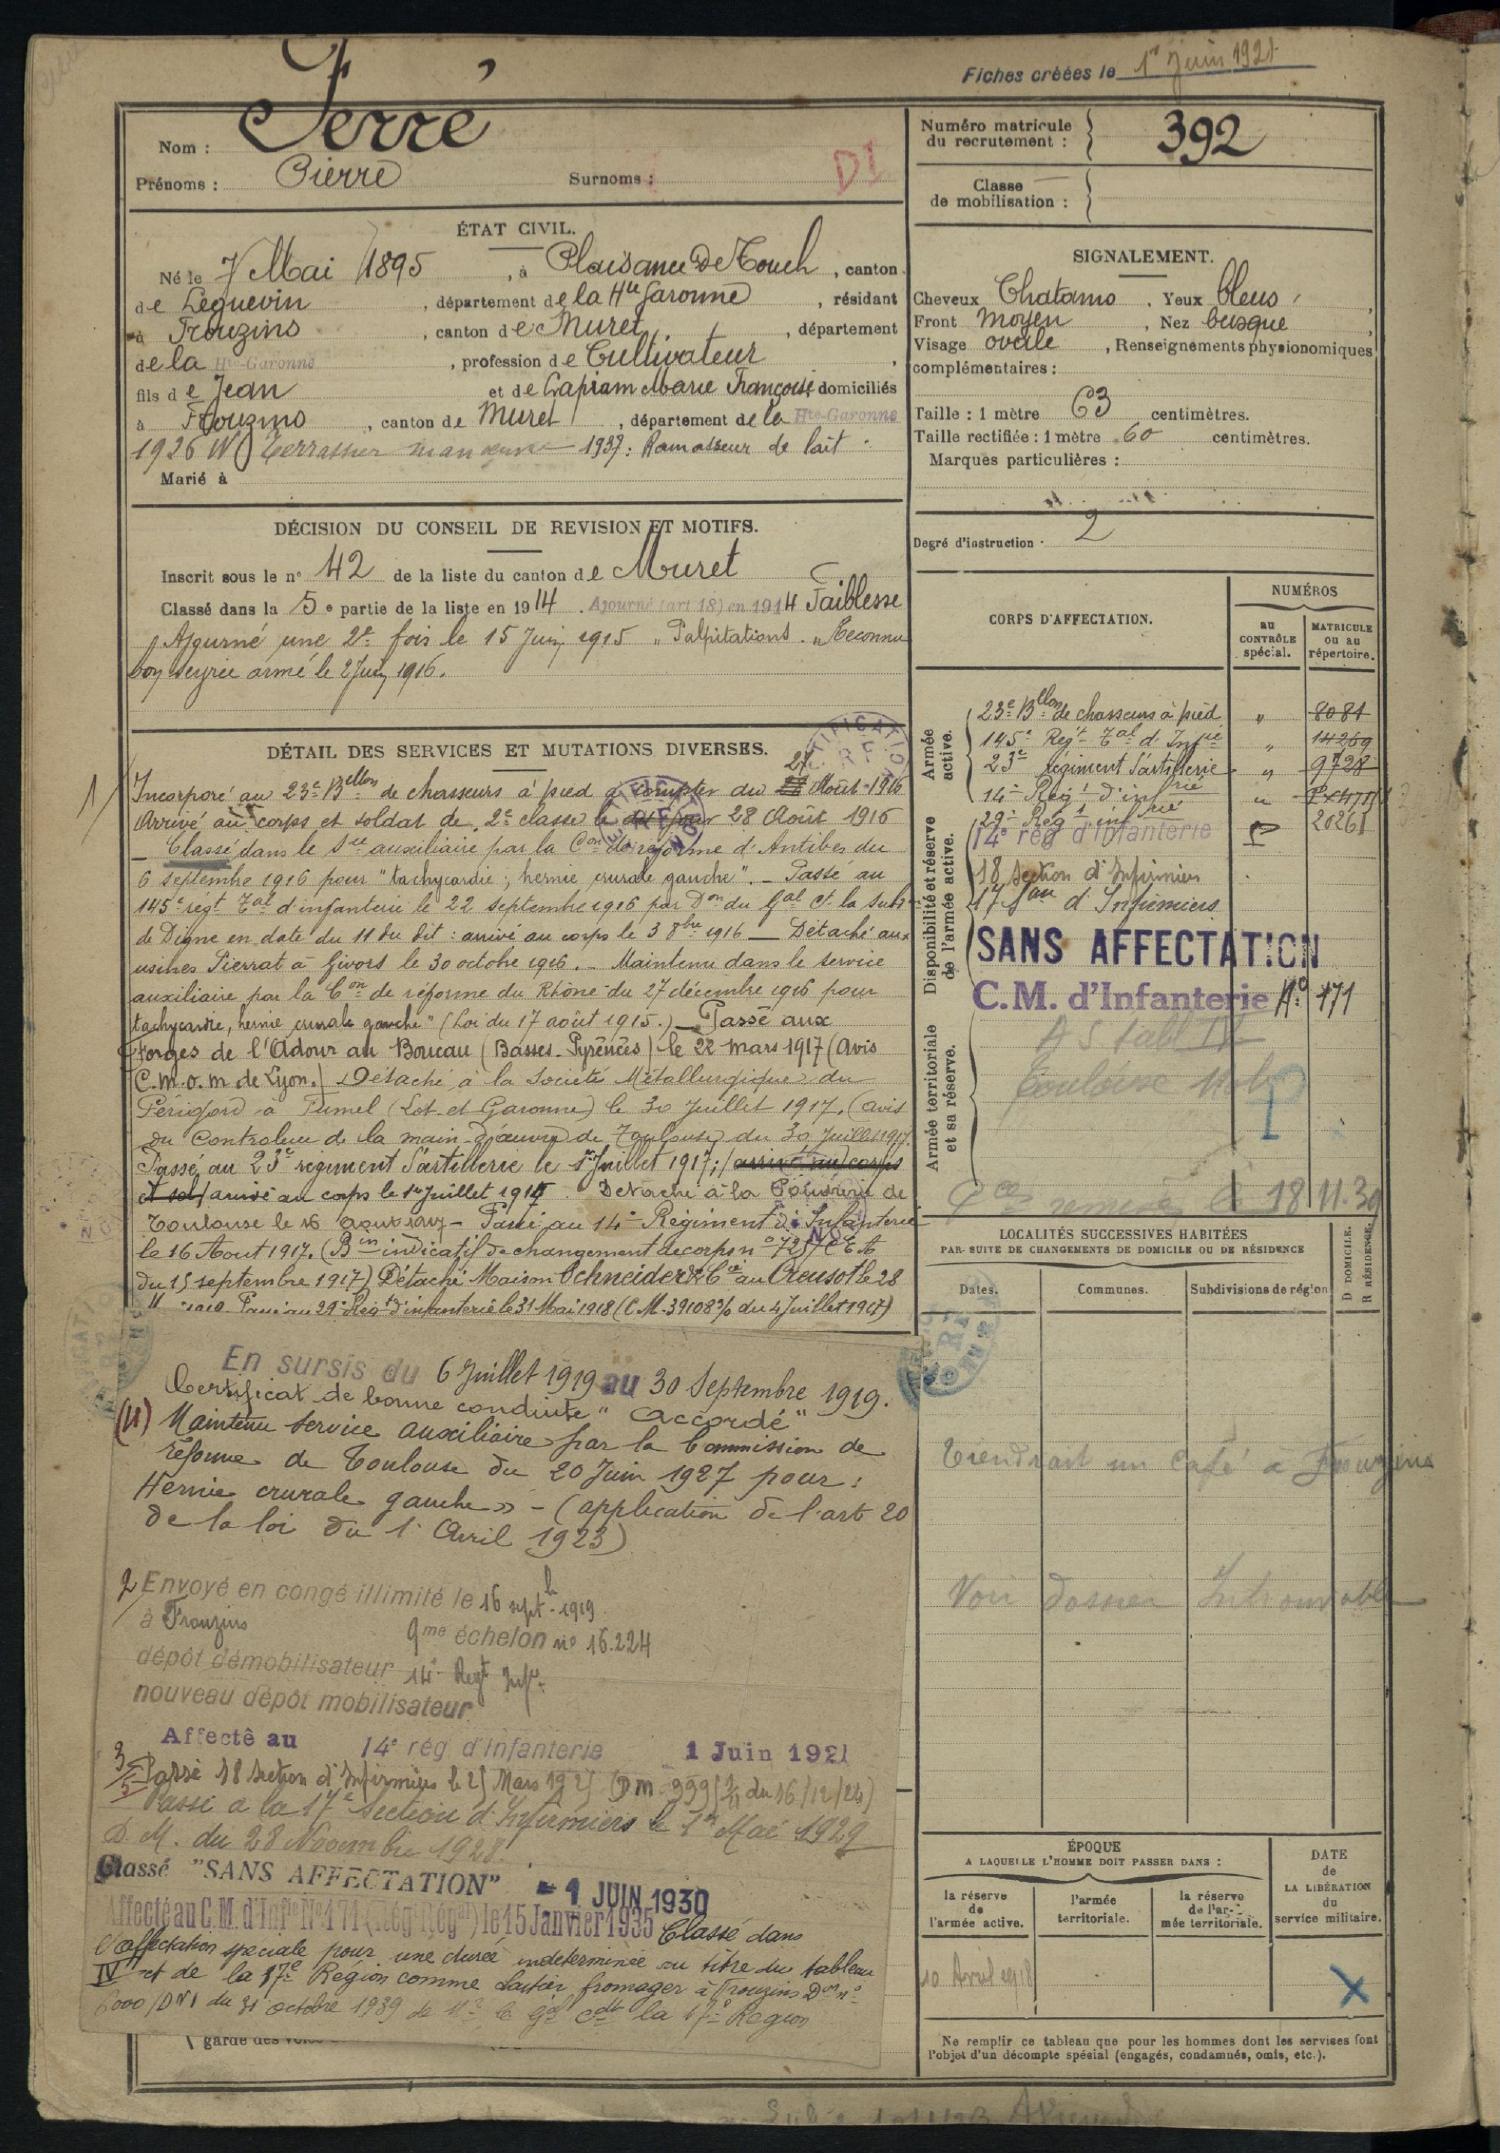 Fiches créées le 1er Juin 1921
Nom : Serré
Prénoms : Pierre Surnoms : DI
Numéro matricule du recrutement : 392
Classe de mobilisation :
ÉTAT CIVIL.
Né le 7 Mai 1895, à Plaisance De Touch, canton
de Léguevin, département de la Hte Garonne, résidant
à Frouzins, canton de Muret, département
de la Hte-Garonne, profession de Cultivateur
fils de Jean et de Marie Françoise domiciliés
à Frouzins, canton de Muret, département de la Hte-Garonne
1926 Terrassier manœuvre 1937 : Ramasseur de lait
Marié à
SIGNALEMENT.
Cheveux Chatains. Yeux bleus
Front moyen, Nez busqué
Visage ovale, Renseignements physionomiques
complémentaires :
Taille : 1 mètre 63 centimètres.
Taille rectifiée : 1 mètre 60 centimètres.
Marques particulières :
Degré d'instruction : 2
DÉCISION DU CONSEIL DE REVISION ET MOTIFS.
Inscrit sous le n° 42 de la liste du canton de Muret
Classé dans la 5e partie de la liste en 1914. Ajourné (art 18) en 1914 Faiblesse
Ajourné une 2e fois le 15 Juin 1915 "Palpitations". Reconnu
bon service armé le 2 Juin 1916.
DÉTAIL DES SERVICES ET MUTATIONS DIVERSES.
1/ Incorporé au 23e Bllon de chasseurs à pied à compter du 27 Août 1916
Arrivé au corps et soldat de 2e classe le 28 Août 1916
— Classé dans le Sce auxiliaire par la Con de réforme d'Antibes du
6 septembre 1916 pour "tachycardie ; hernie crurale gauche". — Passé au
145e régt Tal d'infanterie le 22 septembre 1916 par Don du Gal Ct. la Subon
de Digne en date du 11 du dit : arrivé au corps le 3 8bre 1916 — Détaché aux
usines Pierrat à Givors le 30 octobre 1916. — Maintenu dans le service
auxiliaire par la Con de réforme du Rhône du 27 décembre 1916 pour
tachycardie, hernie crurale gauche" (Loi du 17 août 1915.) — Passé aux
Forges de l'Adour au Boucau (Basses-Pyrénées) le 22 mars 1917 (Avis
C.m.o.m de Lyon.) Détaché à la Société Métallurgique du
Périgord à Fumel (Lot et Garonne) le 30 Juillet 1917. (avis
du Controleur de la main-d'œuvre de Toulouse du 30 Juillet 1917.
Passé au 23e régiment d'artillerie le 1er Juillet 1917; (arrivé au corps
et sol) arrivé au corps le 1er Juillet 1917. Détaché à la Poudrerie de
Toulouse le 16 aout 1917 — Passé au 14e Régiment d'Infanterie
le 16 Aout 1917. (Bin indicatif de changement de corps n° 725
du 15 septembre 1917) Détaché Maison Schneider & Cie au Creusot le 28
Passé au 29e Régt d'infanterie le 31 Mai 1918 (C.M. 39108 du 4 Juillet 1917)
En sursis du 6 Juillet 1919 au 30 Septembre 1919.
Certificat de bonne conduite "Accordé"
(4) Maintenu Service auxiliaire par la Commission de
réforme de Toulouse du 20 Juin 1927 pour :
Hernie crurale gauche » — (application de l'art 20
de la loi du 1 Avril 1923)
2/ Envoyé en congé illimité le 16 sept 1919
à Frouzins 9me échelon n° 16.224
dépôt démobilisateur 14e Régt Infie
nouveau dépôt mobilisateur
3/ Affecté au 14e rég d'Infanterie 1 Juin 1921
5/ Passé 18 Section d'Infirmiers le 25 Mars 1925 (DM du 16/12/24)
Passé à la 17e Section d'Infirmiers le 1er Mai 1929
D.M. du 28 Novembre 1928.
Classé "SANS AFFECTATION" - 1 JUIN 1930
Affecté au C.M. d'Infie N°171 (Rég Régal) le 15 Janvier 1935 Classé dans
l'affectation spéciale pour une durée indéterminée au titre du tableau
IV et de la 17e Région comme laitier fromager à Frouzins Don n°
6000/DM1 du 31 octobre 1939 de Mr le Gal Cdt la 17e Région
garde des voies
CORPS D'AFFECTATION.
NUMÉROS
au CONTRÔLE spécial.
MATRICULE ou au répertoire.
Armée active.
23e Bllon de chasseurs à pied " 8081
145e Régt Tal d'Infie " 14269
23e régiment d'artillerie " 9728
14e Régt d'infrie "
Disponibilité et réserve de l'armée active.
29e Régt infrie 20261
14e rég d'Infanterie
18 Section d'Infirmiers
17 Son d'Infirmiers
SANS AFFECTATION
C.M. d'Infanterie N° 171
Armée territoriale et sa réserve.
A S tabl IV
Toulouse
18.11.39
LOCALITÉS SUCCESSIVES HABITÉES
PAR SUITE DE CHANGEMENTS DE DOMICILE OU DE RÉSIDENCE
Dates. Communes. Subdivisions de région. D DOMICILE. R RÉSIDENCE.
Tiendrait un Café à Frouzins
Voir dossier Introuvable
ÉPOQUE
A LAQUELLE L'HOMME DOIT PASSER DANS :
la réserve de l'armée active.
l'armée territoriale.
la réserve de l'armée territoriale.
DATE de LA LIBÉRATION du service militaire.
10 Avril 1918
Ne remplir ce tableau que pour les hommes dont les services font
l'objet d'un décompte spécial (engagés, condamnés, omis, etc.).